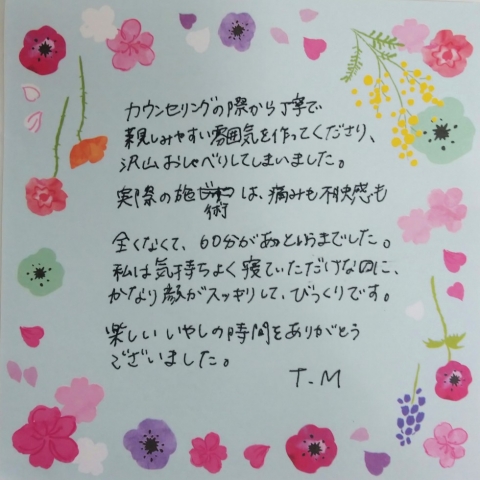 カウンセリングの際から丁寧で
親しみやすい雰囲気を作ってくださり、
沢山おしゃべりしてしまいました。
実際の施術は、痛みも不快感も
全くなくて、60分があっというまでした。
私は気持ちよく寝ていただけなのに、
かなり顔がスッキリして、びっくりです。
楽しいいやしの時間をありがとう
ございました。
T.M